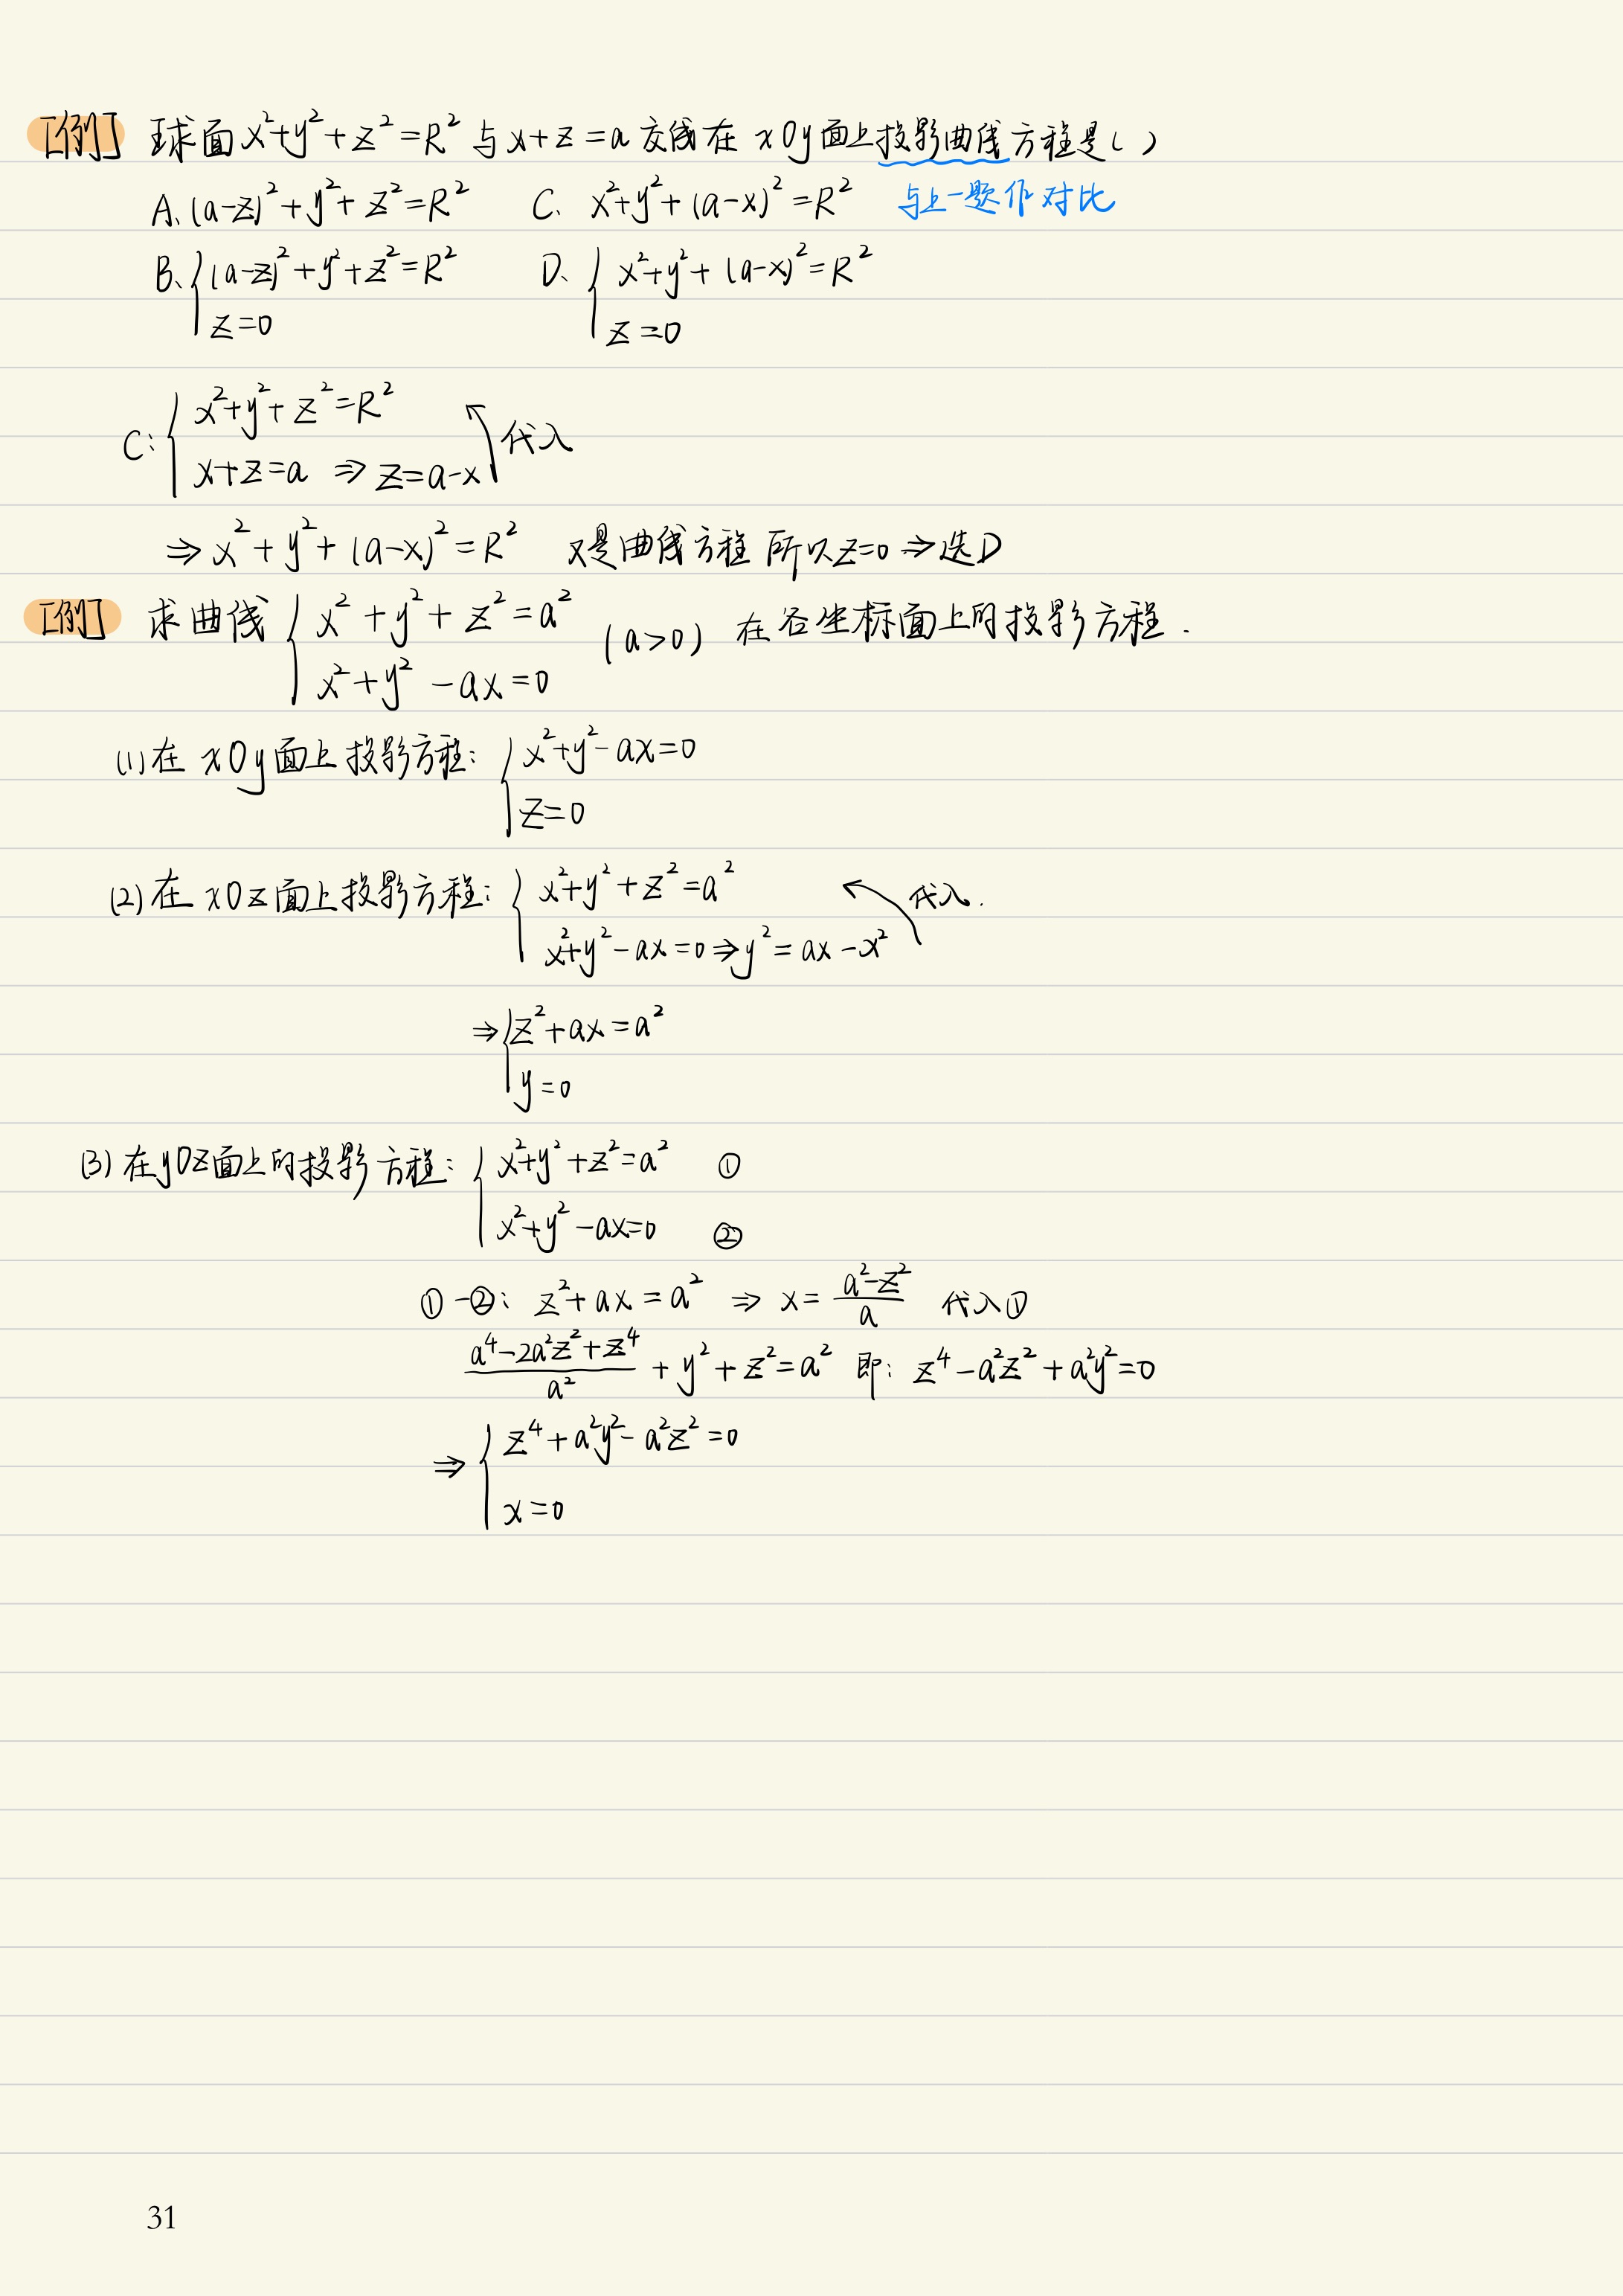 [例] 球面x²+y²+z²=R²与x+z=a交线在xOy面上投影曲线方程是( )
A、(a-z)²+y²+z²=R² C、x²+y²+(a-x)²=R² 与上一题作对比
B、{(a-z)²+y²+z²=R² D、{x²+y²+(a-x)²=R²
z=0 z=0
C: {x²+y²+z²=R²
x+z=a ⇒ z=a-x 代入
⇒ x²+y²+(a-x)²=R² 又是曲线方程 所以z=0 ⇒选D
[例] 求曲线 {x²+y²+z²=a²
x²+y²-ax=0 (a>0) 在各坐标面上的投影方程.
(1) 在xOy面上投影方程: {x²+y²-ax=0
z=0
(2) 在xOz面上投影方程: {x²+y²+z²=a² 代入.
x²+y²-ax=0 ⇒ y²=ax-x²
⇒ {z²+ax=a²
y=0
(3) 在yOz面上的投影方程: {x²+y²+z²=a² ①
x²+y²-ax=0 ②
①-②: z²+ax=a² ⇒ x=(a²-z²)/a 代入①
(a⁴-2a²z²+z⁴)/a² + y²+z²=a² 即: z⁴-a²z²+a²y²=0
⇒ {z⁴+a²y²-a²z²=0
x=0
31